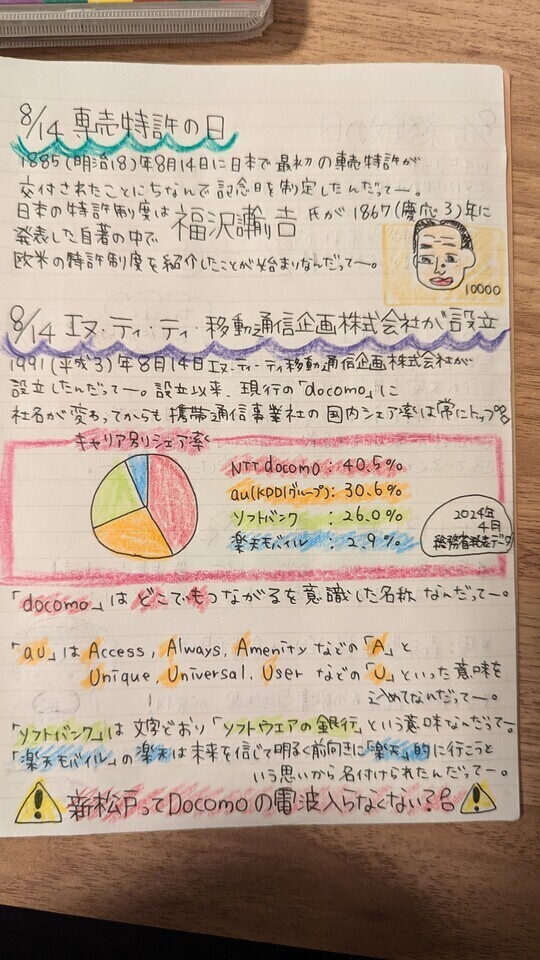 8/14 専売特許の日
1885(明治18)年8月14日に日本で最初の専売特許が
交付されたことにちなんで記念日を制定したんだってー。
日本の特許制度は福沢諭吉氏が1867(慶応3)年に
発表した自著の中で
欧米の特許制度を紹介したことが始まりなんだってー。
10000
8/14 エヌ・ティ・ティ・移動通信企画株式会社が設立
1991(平成3)年8月14日エヌ・ティ・ティ移動通信企画株式会社が
設立したんだってー。設立以来、現行の「docomo」に
社名が変わってからも携帯通信事業社の国内シェア率は常にトップ
キャリア別シェア率
NTT docomo:40.5%
au(KDDIグループ):30.6%
ソフトバンク:26.0%
楽天モバイル:2.9%
2024年
4月
総務省発表データ
「docomo」はどこでもつながるを意識した名称なんだってー。
「au」はAccess, Always, Amenityなどの「A」と
Unique, Universal, Userなどの「U」といった意味を
込めてないだってー。
「ソフトバンク」は文字どおり「ソフトウェアの銀行」という意味なんだってー。
「楽天モバイル」の楽天は未来を信じて明るく前向きに「楽天」的に行こうと
いう思いから名付けられたんだってー。
! 新松戸ってDocomoの電波入らなくない? !